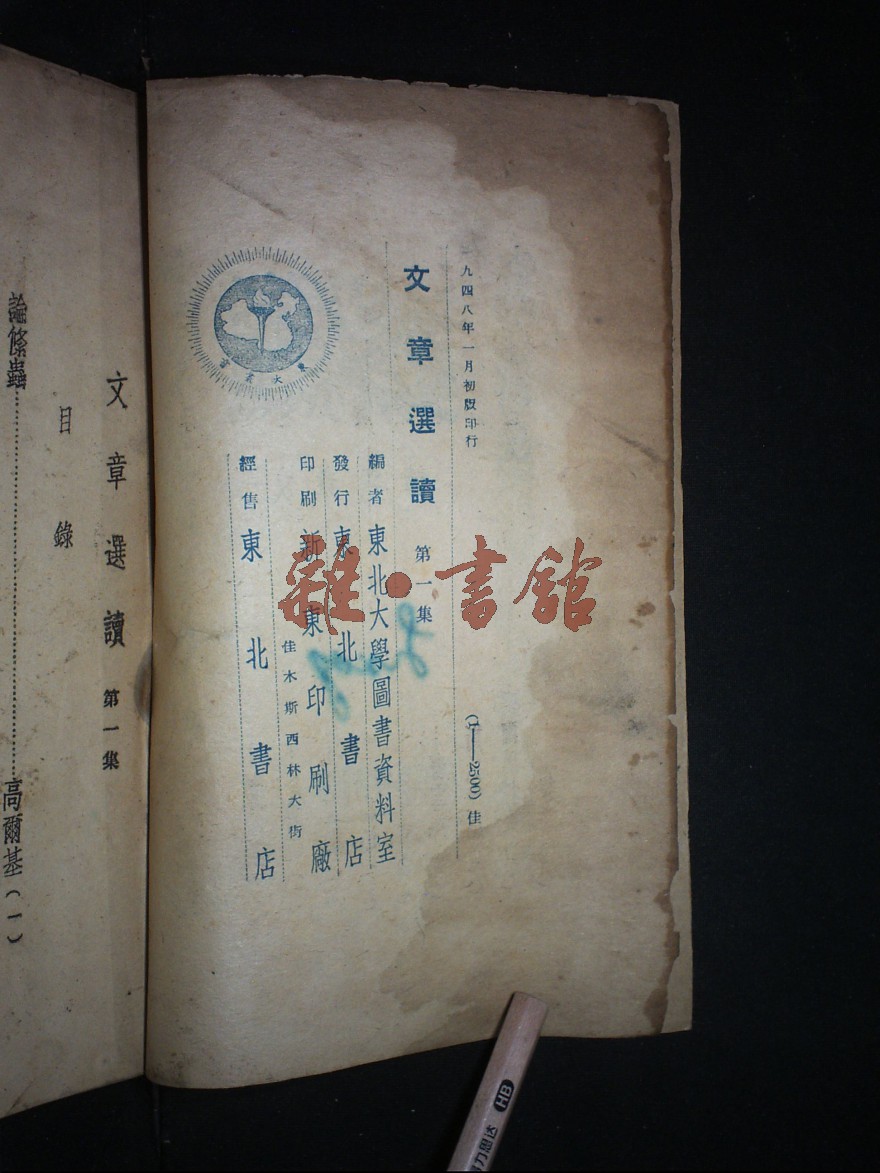 一九四八年一月初版印行
(1—2500) 佳
文章選讀 第一集
編者 東北大學圖書資料室
發行 東北書店
印刷 新東印刷廠
佳木斯西林大街
經售 東北書店
文章選讀 第一集
目錄
論條蟲……高爾基(一)
雜·書館
HB